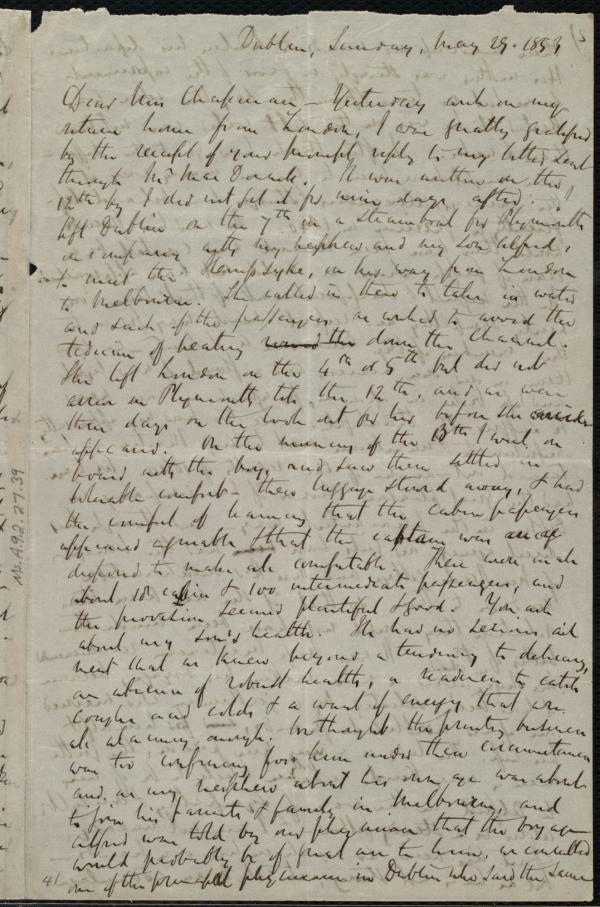 Dublin, Sunday, May 29. 1853
Dear Mrs Chapman – Yesterday and on my
return home from London, I was greatly gratified
by the receipt of your prompt reply to my letter sent
through Mr. It was written on the
12th but I did not get it for nine days after. I
left Dublin on the 7th in a steamboat for Plymouth
in company with my nephew and my son Alfred,
to meet the on her way from London
to Melbourne. She called in there to take in water
and such of the passengers as wished to avoid the
tedium of beating down the Channel.
She left London on the 4th or 5th but did not
arrive in Plymouth till the 12th, and we were
three days on the look out for her before she
appeared. On the morning of the 13th I went on
board with the boys and saw them settled in
tolerable comfort – their luggage stowed away, & had
the comfort of learning that the cabin passengers
appeared agreeable & that the captain was
disposed to make all comfortable. There were in all
about 18 cabin & 100 intermediate passengers, and
the provision seemed plentiful & good. You ask
about my son's health. He had no serious ail
ment that we knew beyond a tendency to delicacy,
an absence of robust health, a readiness to catch
coughs and colds & a want of energy that are
all alarming enough. We thought the printing business
was too confining for him under these circumstances
and as my nephew about his own age was about
to join his parents & family in Melbourne, and
Alfred was told by our physician that the voyage
would probably be of great use to him, we consulted
one of the principal physicians in Dublin who said the same
Ms.A.9.2.27.39
41